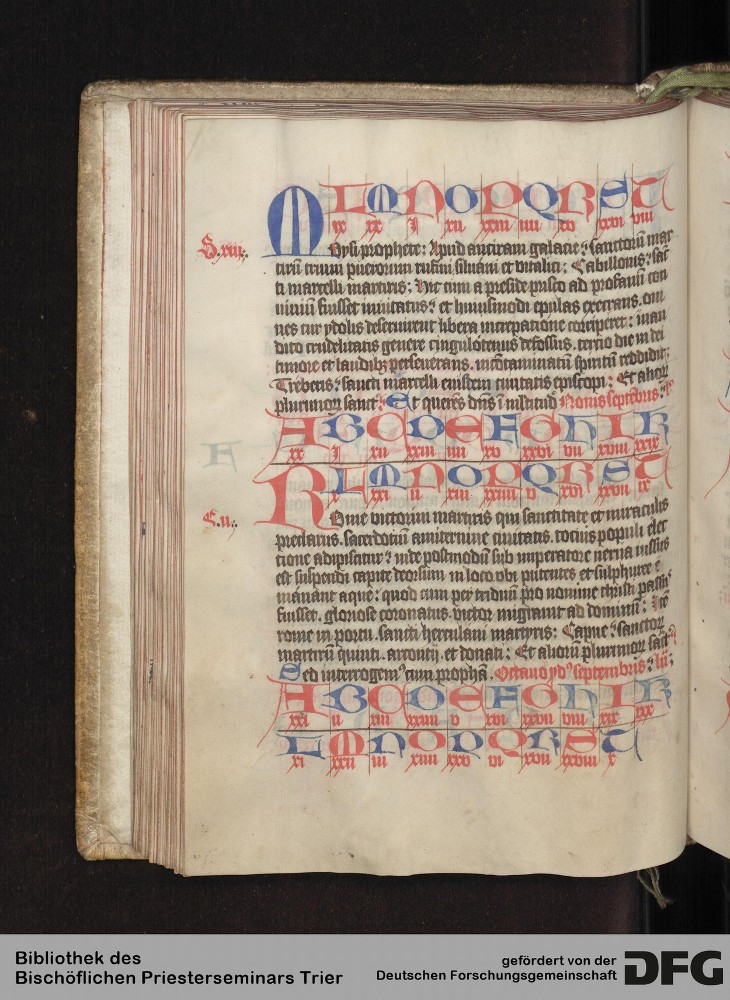 L M N O P Q R S T
ix xx I xii xxiii iiii xv xxvi viii
S. xiii.
Moysi prophete: Apud anciram galacie: sanctorū mar
tirū trium puerorum rufini siluani et vitalici: Cabillonis: sāc
ti marcelli martiris: hic cum a preside prisco ad prophanū con
uiuiū fuisset inuitatus: et huiusmodi epulas execrans. om
nes cur ydolis deseruirent libera increpatione corriperet: inau
dito crudelitatis genere cingulotenus defossus. tercio die in dei
timore et laudibꝫ perseuerans. incōtaminatū spiritū reddidit:
Treberis: sancti marcelli eiusdem ciuitatis episcopi: Et alioꝝ
plurimoꝝ sanct: Et querēs dn̄s ī mltitud Nonis septēbris:
A B C D E F G H I K
xx I xii xxiii iiii xv xxvi vii xviii xxix
L M N O P Q R S T
xxi ii xiii xxiiii v xvi xxvii ix
E. u.
Rome victorini martiris qui sanctitate et miraculis
preclarus. sacerdotiū amiternine ciuitatis. tocius populi elec
tione adipiscitur: inde postmodū sub imperatore nerua iussus
est suspendi capite deorsum in loco vbi putentes et sulphuree
manant aque: quod cum per triduū pro nomine christi passus
fuisset. gloriose coronatus. victor migrauit ad dominū: Itē
rome in portu. sancti herculani martyris: Capue: sanctoꝝ
martirū quinti. arcontij. et donati: Et aliorū plurimoꝝ sāct
Sed interrogem⁹ cum prophā. Octauo yd⁹ septembris:
A B C D E F G H I K
xxi ii xiii xxiiii v xvi xxvii viii xix xxx
L M N O P Q R S T
xi xxii iii xiiii xxv vi xvii xxviii x
Bibliothek des
Bischöflichen Priesterseminars Trier
gefördert von der
Deutschen Forschungsgemeinschaft DFG